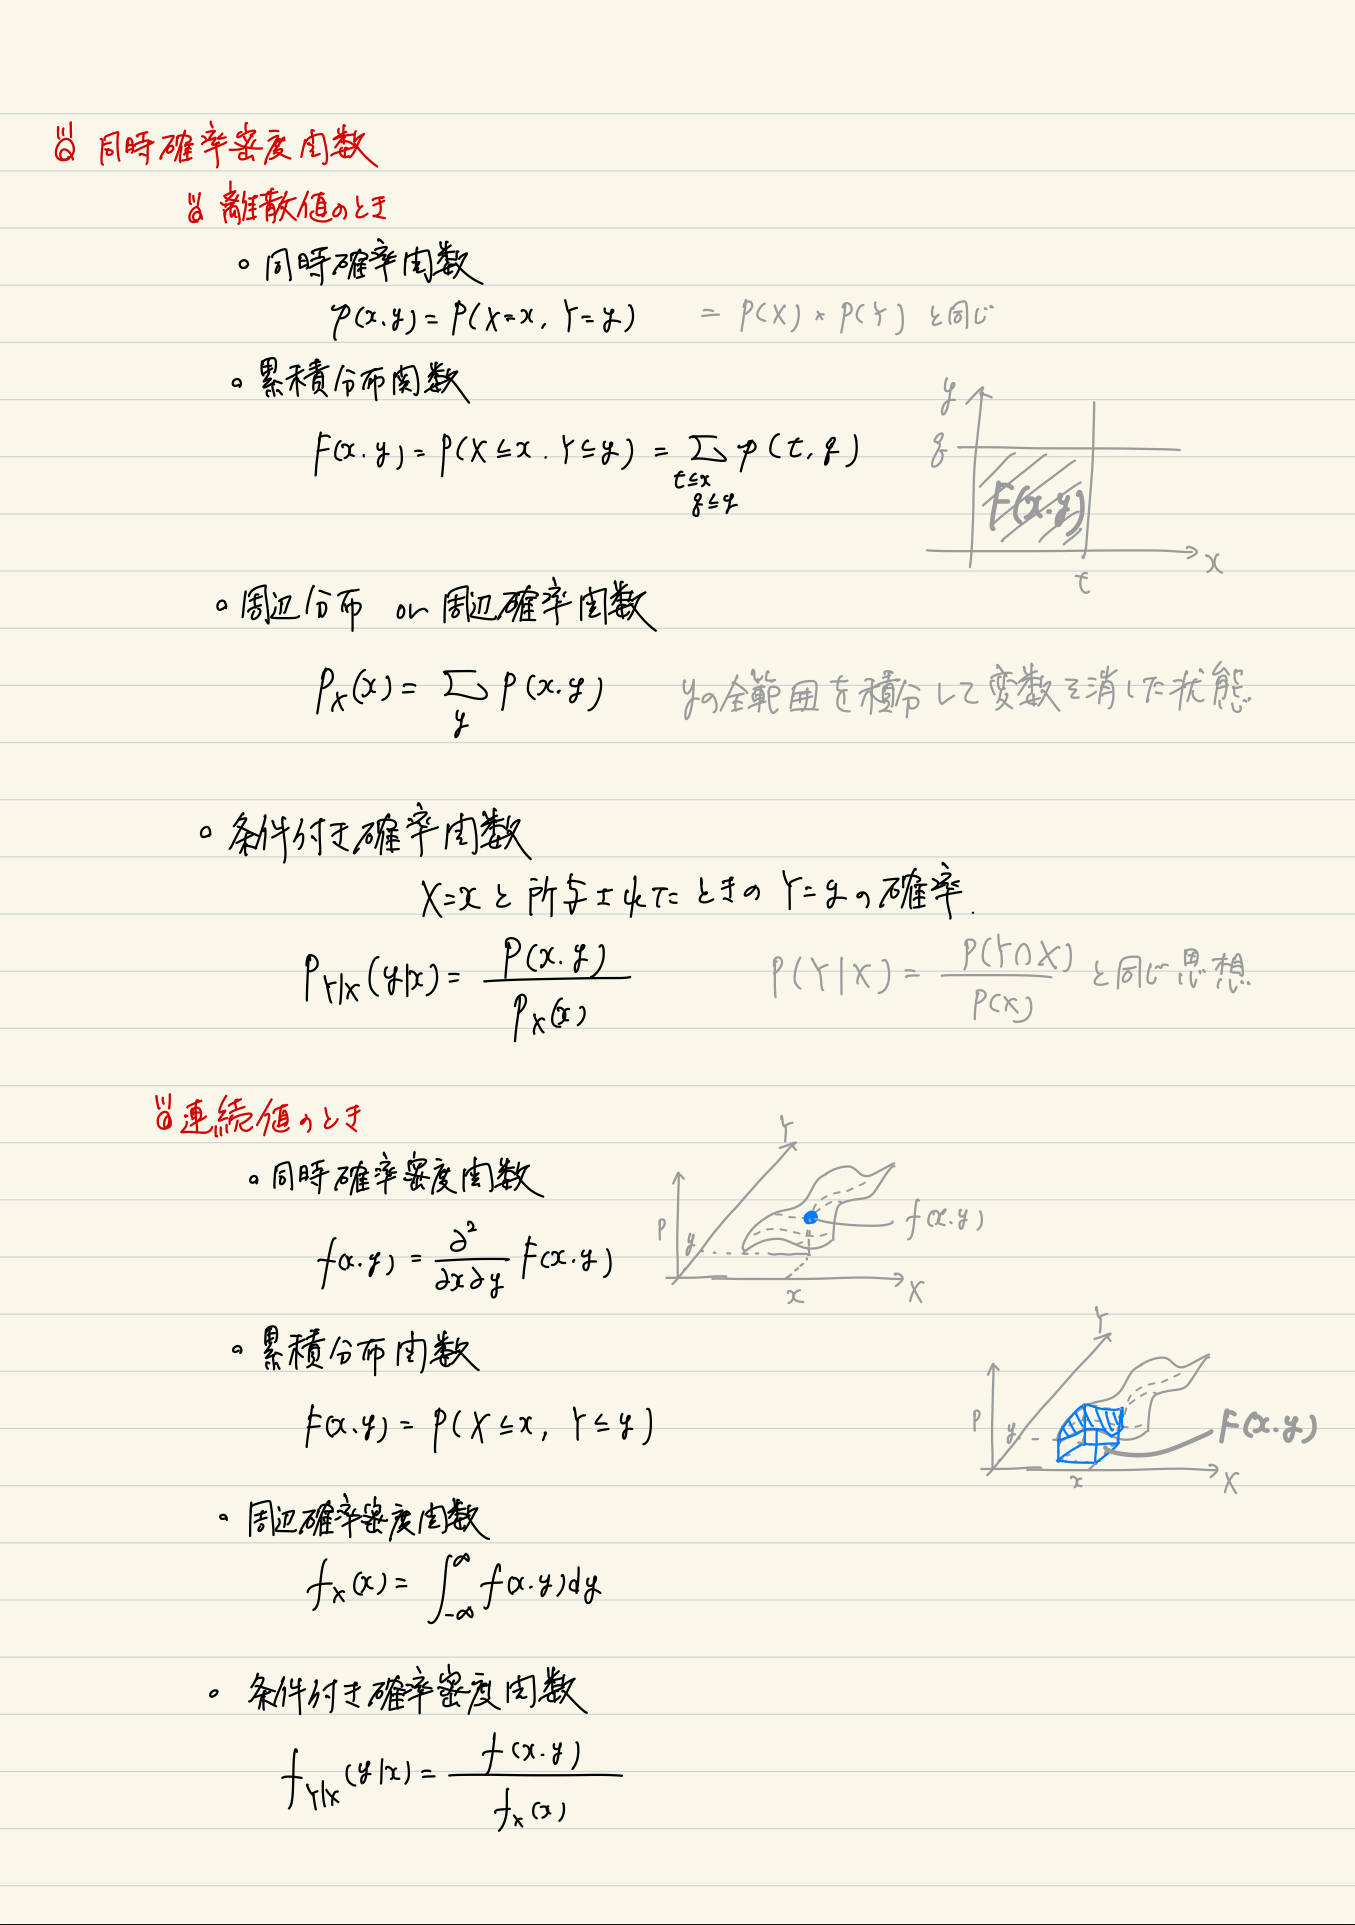 同時確率密度関数
離散値のとき
○ 同時確率関数
p(x.y) = P(X=x, Y=y) = P(X) * P(Y) と同じ
○ 累積分布関数
F(x.y) = P(X≦x . Y≦y) = ∑ p(t, q)
t≦x
q≦y
y
q
F(x.y)
t
x
○ 周辺分布 or 周辺確率関数
P_X(x) = ∑ p(x.y)
y
yの全範囲を積分して変数を消した状態
○ 条件付き確率関数
X=x と所与されたときの Y=yの確率.
P_{Y|X}(y|x) = P(x.y) / P_X(x)
P(Y|X) = P(Y∩X) / P(X) と同じ思想
連続値のとき
○ 同時確率密度関数
f(x.y) = ∂² / ∂x∂y F(x.y)
Y
P
y
f(x.y)
x
X
○ 累積分布関数
F(x.y) = P(X≦x, Y≦y)
Y
P
y
F(x.y)
x
X
○ 周辺確率密度関数
f_X(x) = ∫_{-∞}^{∞} f(x.y)dy
○ 条件付き確率密度関数
f_{Y|X}(y|x) = f(x.y) / f_X(x)